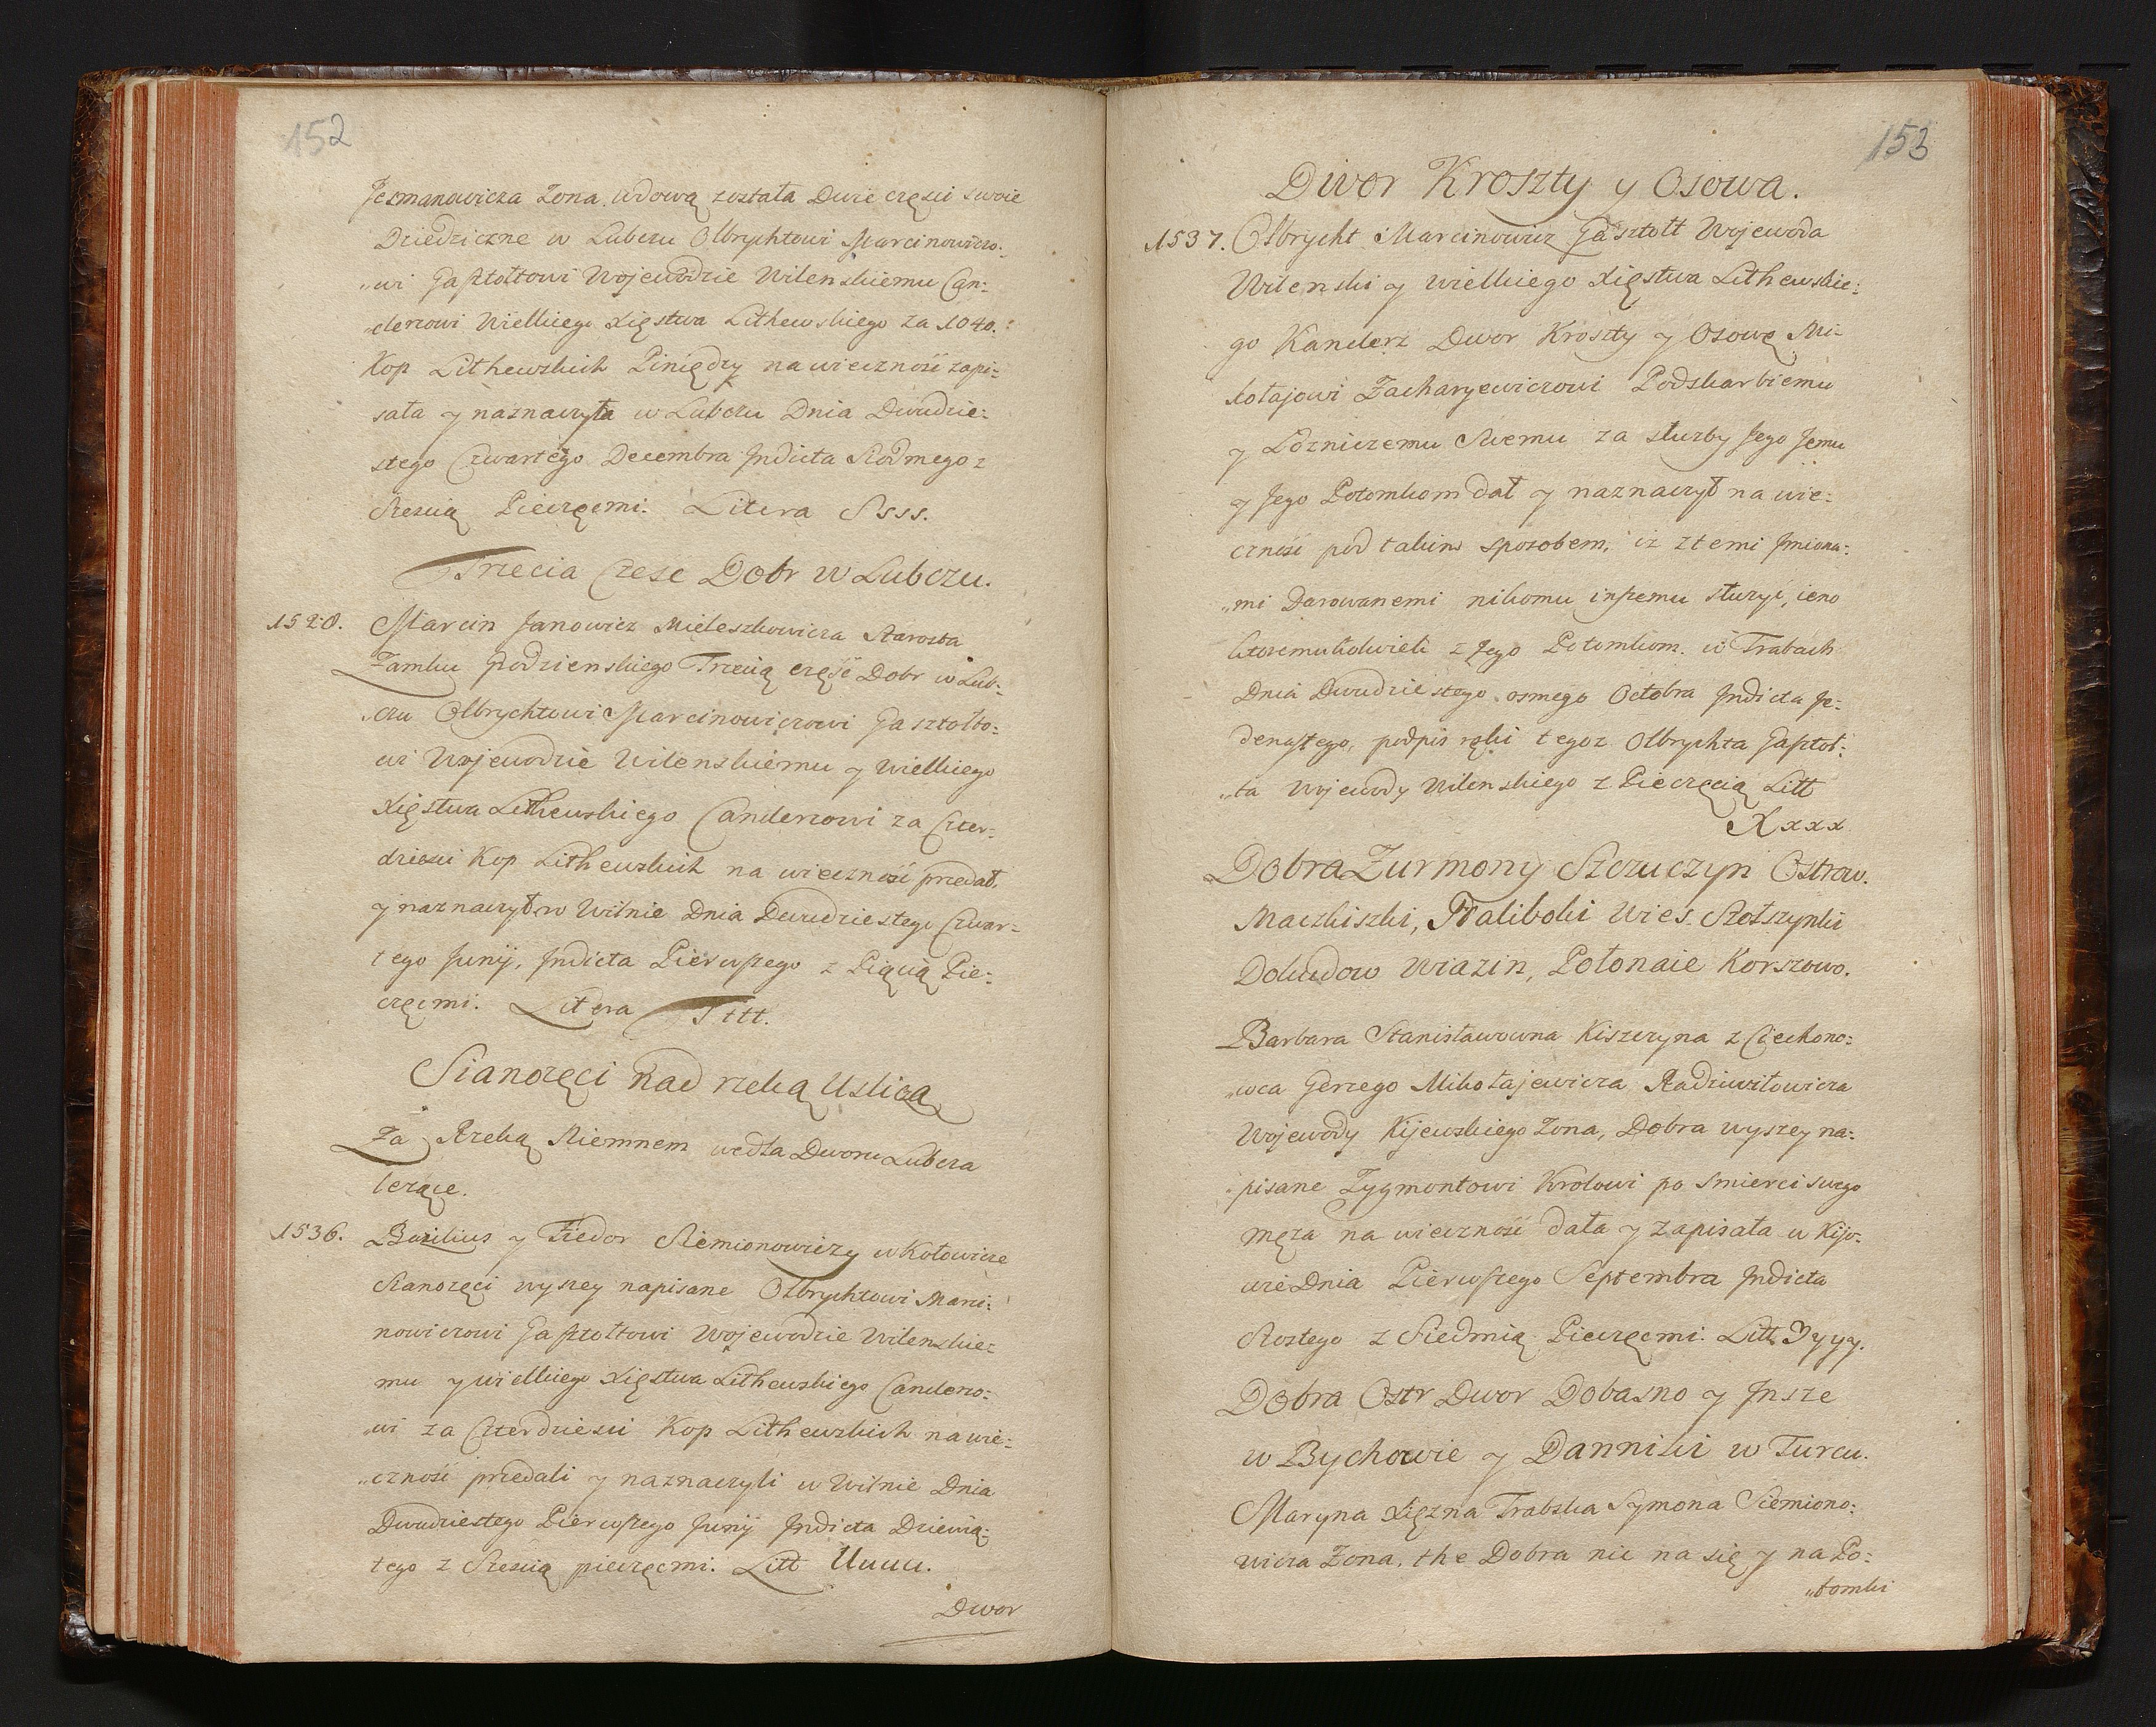 152
Jesmanowicza Zona. wdową została Dwie części swoie
Dziedziczne w Lubczu Olbrychtowi Marcinowiczo:
„wi Gasztołtowi Wojewodzie Wilenskiemu Can:
„clerzowi Wielkiego Xięstwa Lithewskiego za 1040.
Kop Lithewskich Piniędzy na wieczność zapi:
sała y naznaczyła w Lubczu Dnia Dwudzie:
stego Czwartego Decembra Jndicta Siodmego z
Szescią Pieczęcmi. Litera Ssss.
Trzecia Częsc Dobr w Lubczu.
1528. Marcin Janowicz Mieleszkowicza Starosta
Zamku Grodzienskiego Trzecią część Dobr w Lub:
„czu Olbrychtowi Marcinowiczowi Gasztołto:
wi Wojewodzie Wilenskiemu y wielkiego
Xięstwa Lithewskiego Canclerzowi za Czter:
dziesci Kop Lithewskich na wieczność przedał,
y naznaczył w Wilnie Dnia Dwudziestego Czwar:
tego Junij, Jndicta Pierwszego z Piącią Pie:
częcmi. Litera Tttt.
Sianozęci nad rzeką Uslicą
Za Rzeką Niemnem wedla Dworu Lubcza
lezące.
1536. Bazilius y Fiedor Siemionowiczy w Kołowicze
Sianozęci wyszey napisane Olbrychtowi Marci:
nowiczowi Gasztołtowi Wojewodzie Wilenskie:
mu y wielkiego Xięstwa Lithewskiego Canclerzo:
„wi za Czterdziesci Kop Lithewskich na wie:
„czność przedali y naznaczyli w Wilnie Dnia
Dwudziestego Pierwszego Junij Jndicta Dziewią:
tego z Szescią pieczęcmi. Litt Uuuu.
Dwor
153
Dwor Kroszty y Osowa.
1537. Olbrycht Marcinowicz Gasztołt Wojewoda
Wilenski y wielkiego Xięstwa Lithewskie:
go Kanclerz Dwor Kroszty y Osowę Mi:
kołajowi Zacharyewiczowi Podskarbiemu
y Łozniczemu Swemu za służby Jego Jemu
y Jego Potomkom dał y naznaczył na wie:
czność pod takim sposobem, iż z temi Jmiona:
„mi Darowanemi nikomu inszemu służyć, ieno
ktoremukolwiek z Jego Potomkom. w Trabach
Dnia Dwudziestego osmego Octobra Jndicta Je:
denastego, podpis ręki tegoz Olbrychta Gasztoł:
„ta Wojewody Wilenskiego z Pieczęcią Litt
Xxxx
Dobra Zurmony Szczuczyn Ostrow.
Maczkiszki, Naliboki Wies. Szołszynki
Dokudow Wiazin, Połonaie Korszowo.
Barbara Stanisławowna Kiszczyna z Ciechono:
„wca Gerzego Mikołajewicza Radziwiłowicza
Wojewody Kijewskiego Zona, Dobra wyszey na:
pisane Zygmontowi Krolowi po smierci swego
męza na wieczność dała y zapisała w Kijo:
wie Dnia Pierwszego Septembra Jndicta
Szostego z Siedmią Pieczęcmi. Litt. Yyyy.
Dobra Ostr Dwor Dobasno y Jnsze
w Bychowie y Danniki w Turcu.
Maryna Xięzna Trabska Symona Siemiono:
wicza Zona. the Dobra nie na się y na Po:
„tomki